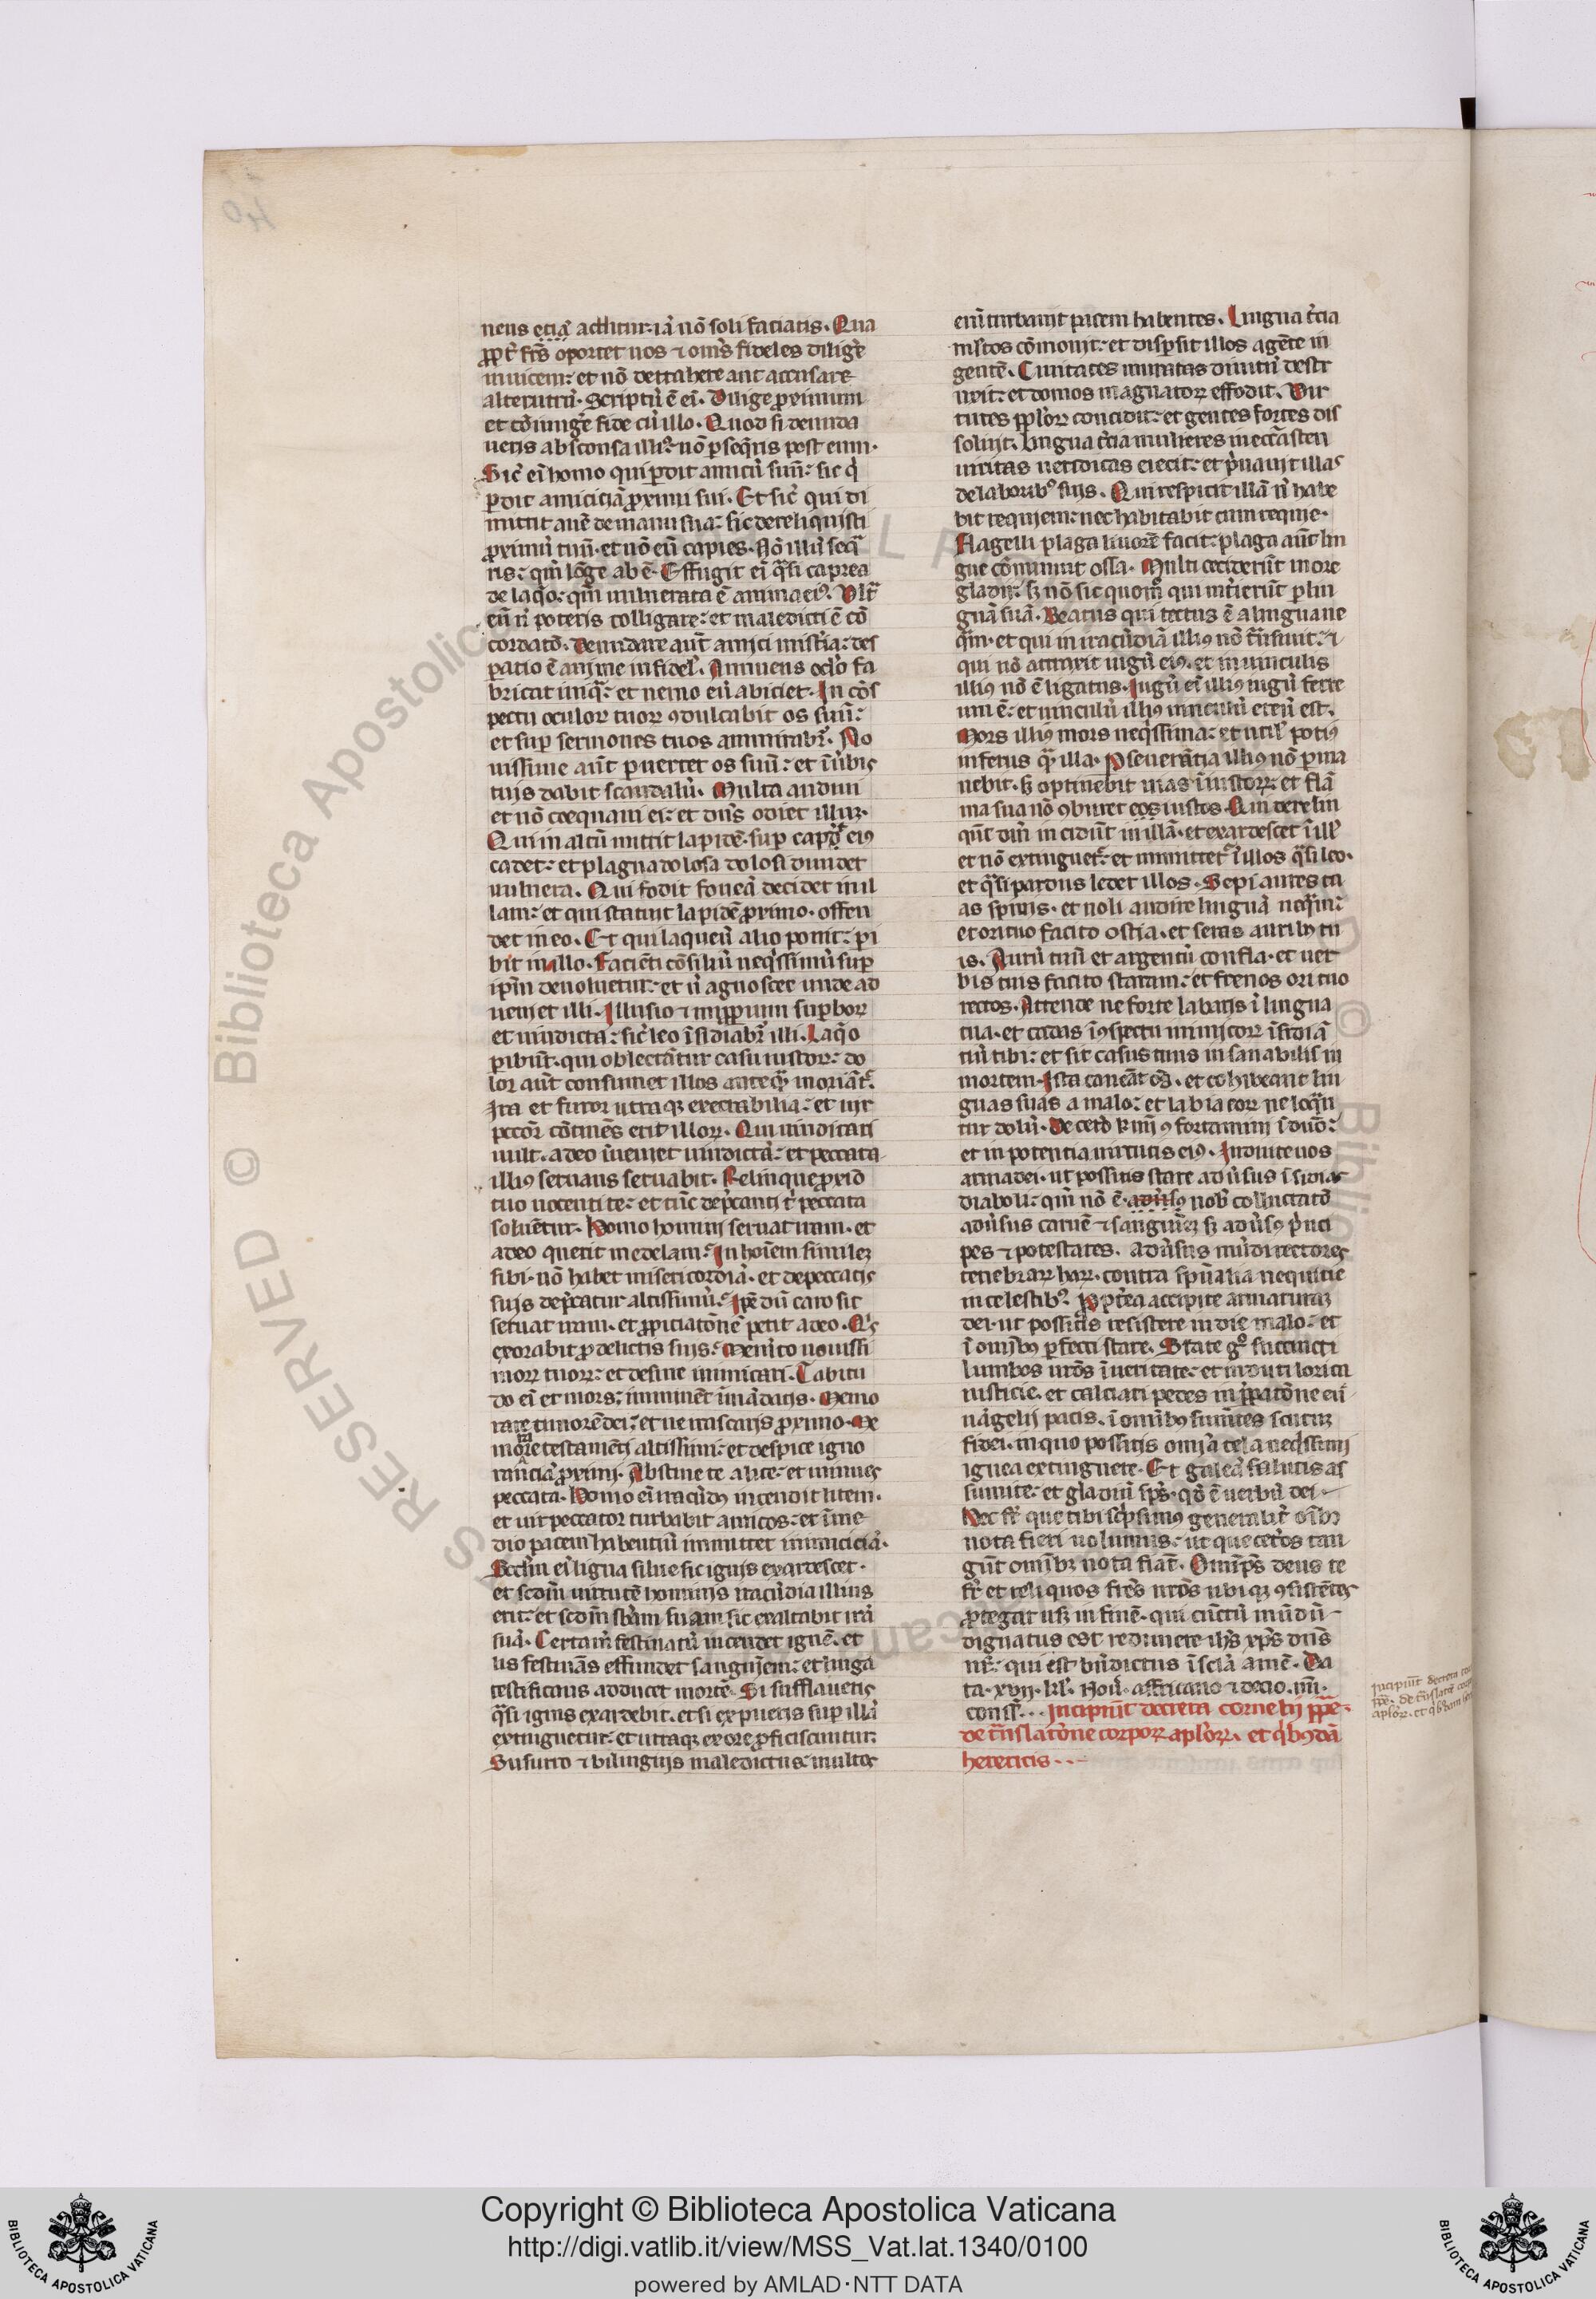 nens etia᷑ additur: ia᷑ nō soli faciatis. Qua
ꝓpt̕ frs̄ oportet nos ⁊ om̄s fideles diligē
inuicem: et nō detrahere aut accusare
alterutrū. Scriptū ē ei̅. Dilige ꝓximum
et cōiunge̅ fide cū illo. Quod si denuda
ueris absconsa illiꝰ: nō ꝑseq̅ris post eum.
Sic̅ ei̅ homo qui ꝑdit amicū suū: sic q̅
ꝑdit amiciciā ꝓximi sui. Et sic̅ qui di
mittit auē de manu sua: sic dereliquisti
ꝓximū tuū. et nō eū capies. Nō illū seq̅
ris: qm̄ lōge abē. Effugit ei̅ q̅si caprea
de laq̅o: qm̄ uulnerata ē anima eiꝰ. Vlt̅
eū n̅ poteris colligare: et maledicti ē cō
cordatō. Denudare aūt amici mist̅ia: des
patio ē anime infidel̅. Annuens oc̅lo fa
bricat iniq̅: et nemo eū abiciet. In cōs
pectu oculoꝝ tuoꝝ ꝯdulcabit os suū:
et suꝑ sermones tuos ammirabr̅. No
uissime aūt ꝑuertet os suū: et i̅ u̅bis
tuis dabit scandalū. Multa audiui
et nō coequaui ei: et dn̄s odiet illuꝫ.
Qui in altū mittit lapidē. suꝑ caput eiꝰ
cadet: et plagua dolosa dolosi diuidet
uulnera. Qui fodit foueā decidet in il
lam: et qui statuit lapidē ꝓximo. offen
det in eo. Et qui laqueū alio ponit: ꝑi
bit in illo. Faciēti cōsiliū neq̅ssimū suꝑ
ip̄m deuoluetur: et n̅ agnoscet unde ad
ueniet illi. Illusio ⁊ imꝓpium suꝑboꝝ
et uindicta: sic̅ leo i̅sidiabr̅ illi. Laq̅o
ꝑibūt. qui oblectātur casu iustoꝝ: do
lor aūt consumet illos anteq̅ moriāt̅.
Ira et furor utraqꝫ execrabilia: et uir
peccōr cōtinēs erit illoꝝ. Qui uindicari
uult. a deo i̅ueniet uindictā: et peccata
illiꝰ seruans seruabit. Relinque ꝓxīo
tuo nocenti te: et tūc dep̅canti t̅ peccata
soluētur. Homo homini seruat iram. et
a deo querit medelam: In hoīem simileꝫ
sibi. nō habet misericordiā. et de peccatis
suis dep̅catur altissimū: Ip̄e dū caro sit
seruat iram. et ꝓpiciatōne̅ petit a deo. Qi̅s
exorabit ꝓ delictis suis: Mem̅to nouissi
moꝝ tuoꝝ: et desine inimicari. Tabitu
do ei̅ et mors: imminēt i̅ mādatis. Memo
rare timorē dei: et ne irascaris ꝓximo. Me
more testamēti altissimi: et despice igno
rancia̅ ꝓximi. Abstine te a lite: et minues
peccata. Homo ei̅ iracūdꝰ incendit litem.
et uir peccator turbabit amicos: et i̅ me
dio pacem habentiū immittet inimiciciā.
Sc̅dm̄ ei̅ ligna silue sic ignis exardescet.
et sc̅dm̄ uirtutē hominis iracūdia illius
erit: et sc̅dm̄ sb̅am suam sic exaltabit irā
suā. Certam̄ festinatū incendet ignē. et
lis festinās effundet sanguinem: et linga
testificans adducet mortē. Si sufflaueris
q̅si ignis exardebit. et si expueris suꝑ illā
extinguetur: et utraqꝫ ex ore ꝓficiscuntur.
Susurro ⁊ bilinguis maledictus: multos
eni̅ turbauit pacem habentes. Lingua t̅cia
multos cōmouit: et disꝑsit illos a gēte in
gentē. Ciuitates muratas diuitū destr
uxit: et domos magnatoꝝ effodit. Vir
tutes ppl̅oꝝ concidit: et gentes fortes dis
soluit. Lingua t̅cia mulieres
uiritas ueridicas eiecit: et p̅uauit illas
de laboribꝰ suis. Qui respicit illā n̅ habe
bit requiem: nec habitabit cum requie.
Flagelli plaga liuorē facit: plaga aūt lin
gue cōminuit ossa. Multi ceciderūt in ore
gladii: sꝫ nō sic quom̅ qui int̅ierūt ꝑ lin
guā suā. Beatus qui tectus ē a lingua ne
q̅m. et qui in iracūdiā illiꝰ nō t̅nsiuit: ⁊
qui nō attraxit iugū eiꝰ. et in uinculis
illiꝰ nō ē ligatus. Iugū ei̅ illiꝰ iugū ferre
um ē: et uinculū illiꝰ uinculū ereū est.
Mors illiꝰ mors neq̅ssima: et util̅ potiꝰ
inferus q̅ illa. Pseuerātia illiꝰ nō ꝑma
nebit. sꝫ optinebit uias i̅iustoꝝ: et flā
ma sua nō ꝯburet eos iustos. Qui derelin
qūt dm̄ incidūt in illā. et exardescet i̅ ill̅
et nō extinguet̅: et immittet̅ i̅ illos q̅si leo.
et q̅si pardus ledet illos. Sepi aures tu
as spinis. et noli audire linguā neq̅m:
et ori tuo facito ostia. et seras auribꝰ tu
is. Aurū tuū et argentū confla. et uer
bis tuis facito stateram: et frenos ori tuo
rectos. Attende ne forte labaris i̅ lingua
tua. et cadas i̅ ꝯspectu inimicoꝝ i̅sidiā
tiū tibi: et sit casus tuus insanabilis in
mortem. Ista caueāt oēs. et cohibeant lin
guas suas a malo: et labia eoꝝ ne loq̅n
tur dolū. De cet̅o kmi̅ ꝯfortamini i̅ dn̄o:
et in potentia uirtutis eiꝰ. Induite uos
arma dei. ut possitis stare adu̅sus i̅sidias
diaboli: qm̄ nō ē aduūsꝰ nob̅ colluctatō
adu̅sus carnē ⁊ sanguinē sꝫ adu̅sꝰ p̅nci
pes ⁊ potestates. adu̅sus mūdi rectores
tenebraꝝ haꝝ. contra sp̅ualia nequitie
in celestibꝰ. Propt̅ea accipite armaturaꝫ
dei. ut possitis resistere in die malo: et
i̅ omībꝰ ꝑfecti stare. State g̅ succincti
lumbos ur̅os i̅ ueritate: et induti lorica
iusticie. et calciati pedes in p̅paratōne eu
uāgelii pacis. i̅ omībꝰ sumētes scutuꝫ
fidei. in quo possitis omīa tela neq̅ssimi
ignea extinguere. Et galeā salutis as
sumite: et gladiū sp̅s. qd̅ ē uerbū dei.
Hec fr̅ que tibi sc̅psimꝰ generalit̅ oībꝫ
nota fieri uolumus: ut que cet̅os tan
gūt omībꝫ nota fiāt. Omīp̅s deus te
fr̅ et reliquos fr̅es ur̅os ubiqꝫ ꝯsistētes
ꝓtegat usqꝫ in finē. qui cūctū mūdū
dignatus est redimere ih̅s xp̅s dn̅s
nr̅: qui est bn̅dictus i̅ scl̅a amē. Da
ta. xvii. kl̅. Nou̅. affricano ⁊ decio. uu̅.
conss̅. Incipiūt decreta cornelii pp̅e.
de t̅nslatōne corpoꝝ apl̅oꝝ. et q̅bꝰdā
hereticis
Incipiūt decreta cor
pp̅e. de t̅nslatōe corpoꝝ
apl̅oꝝ. et q̅bꝰdam
40
© Biblioteca Apostolica Vaticana
Copyright © Biblioteca Apostolica Vaticana
http://digi.vatlib.it/view/MSS_Vat.lat.1340/0100
powered by AMLAD·NTT DATA
BIBLIOTECA APOSTOLICA VATICANA
BIBLIOTECA APOSTOLICA VATICANA